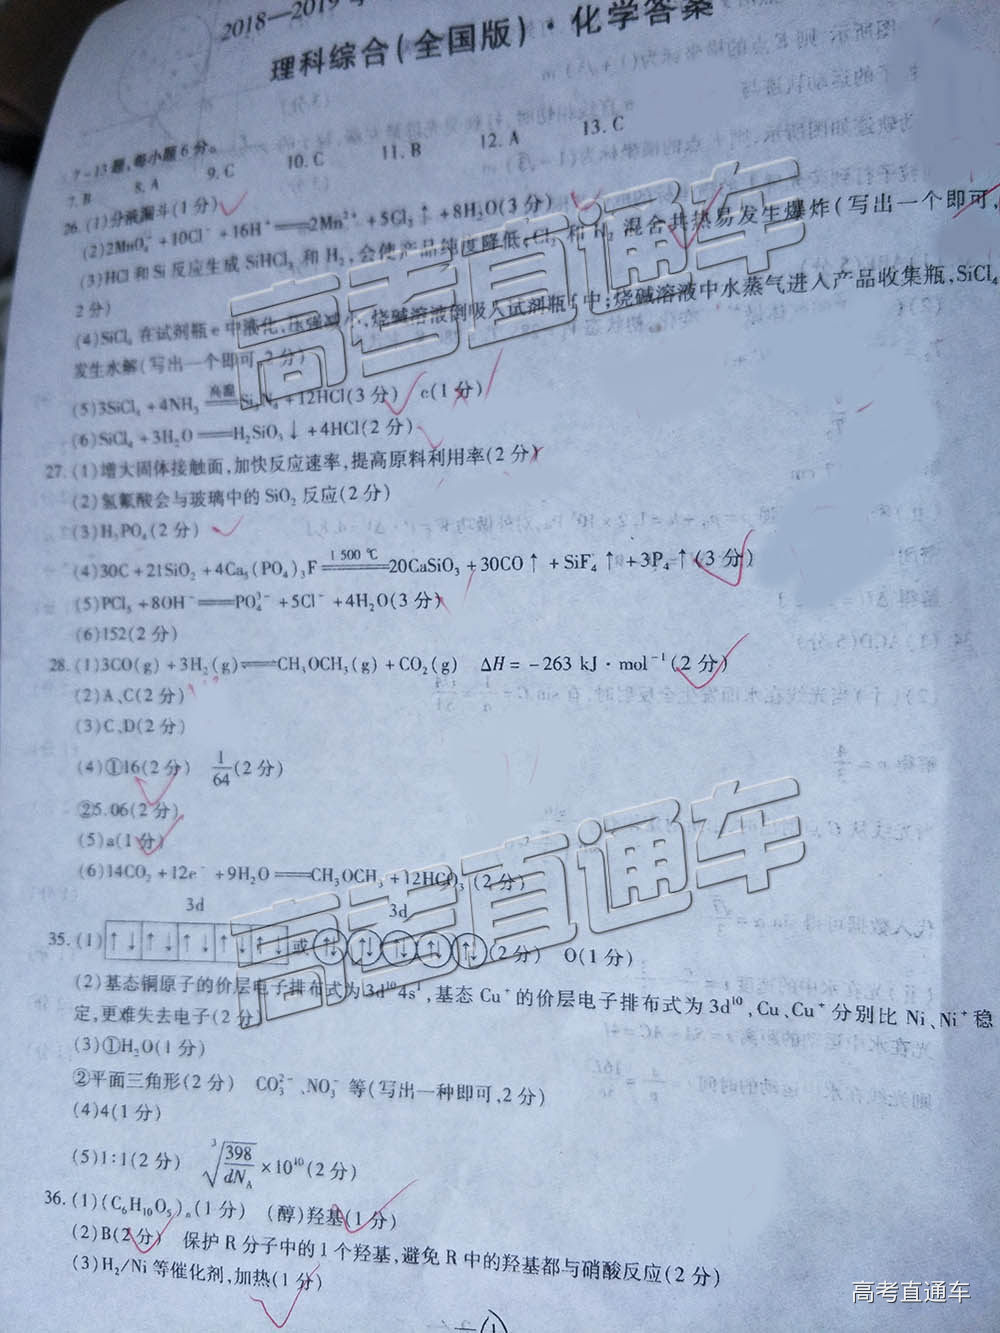 2018—2019
理科综合(全国版)·化学答案
7-13题,每小题6分。
7. B 8. A 9. C 10. C 11. B 12. A 13. C
26. (1)分液漏斗(1分)
(2)2MnO₄⁻+10Cl⁻+16H⁺══2Mn²⁺+5Cl₂↑+8H₂O(3分)
(3)HCl和Si反应生成SiHCl₃和H₂,会使产品纯度降低;Cl₂和H₂混合共热易发生爆炸(写出一个即可,
2分)
(4)SiCl₄在试剂瓶e中液化,压强减小,烧碱溶液倒吸入试剂瓶f中;烧碱溶液中水蒸气进入产品收集瓶,SiCl₄
发生水解(写出一个即可,2分)
(5)3SiCl₄+4NH₃ 高温══ Si₃N₄+12HCl(3分) c(1分)
(6)SiCl₄+3H₂O══H₂SiO₃↓+4HCl(2分)
27. (1)增大固体接触面,加快反应速率,提高原料利用率(2分)
(2)氢氟酸会与玻璃中的SiO₂反应(2分)
(3)H₃PO₄(2分)
(4)30C+21SiO₂+4Ca₅(PO₄)₃F 1 500 ℃══ 20CaSiO₃+30CO↑+SiF₄↑+3P₄↑(3分)
(5)PCl₅+8OH⁻══PO₄³⁻+5Cl⁻+4H₂O(3分)
(6)152(2分)
28. (1)3CO(g)+3H₂(g)⇌CH₃OCH₃(g)+CO₂(g) ΔH=-263 kJ·mol⁻¹(2分)
(2)A、C(2分)
(3)C、D(2分)
(4)①16(2分) 1/64(2分)
②5.06(2分)
(5)a(1分)
(6)14CO₂+12e⁻+9H₂O══CH₃OCH₃+12HCO₃⁻(2分)
3d 3d
35. (1) ↑↓ ↑↓ ↑↓ ↑↓ ↑↓ 或 ↑↓ ↑↓ ↑↓ ↑↓ ↑↓ (2分) O(1分)
(2)基态铜原子的价层电子排布式为3d¹⁰4s¹,基态Cu⁺的价层电子排布式为3d¹⁰,Cu、Cu⁺分别比Ni、Ni⁺稳
定,更难失去电子(2分)
(3)①H₂O(1分)
②平面三角形(2分) CO₃²⁻、NO₃⁻等(写出一种即可,2分)
(4)4(1分)
(5)1:1(2分) ³√(398/dN_A)×10¹⁰(2分)
36. (1)(C₆H₁₀O₅)ₙ(1分) (醇)羟基(1分)
(2)B(2分) 保护R分子中的1个羟基,避免R中的羟基都与硝酸反应(2分)
(3)H₂/Ni等催化剂,加热(1分)
高考直通车
高考直通车
高考直通车